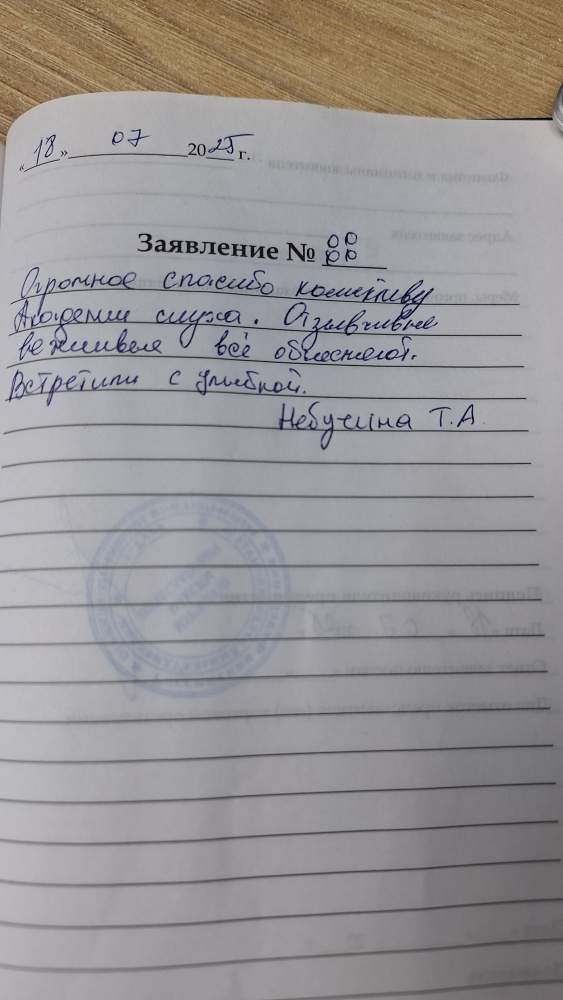 «18» 07 2025 г.
Заявление № 00
00
Огромное спасибо колективу
Академии слуха. Отзывчивые
вежливые всё объясняют.
Встретили с улыбкой.
Т.А.